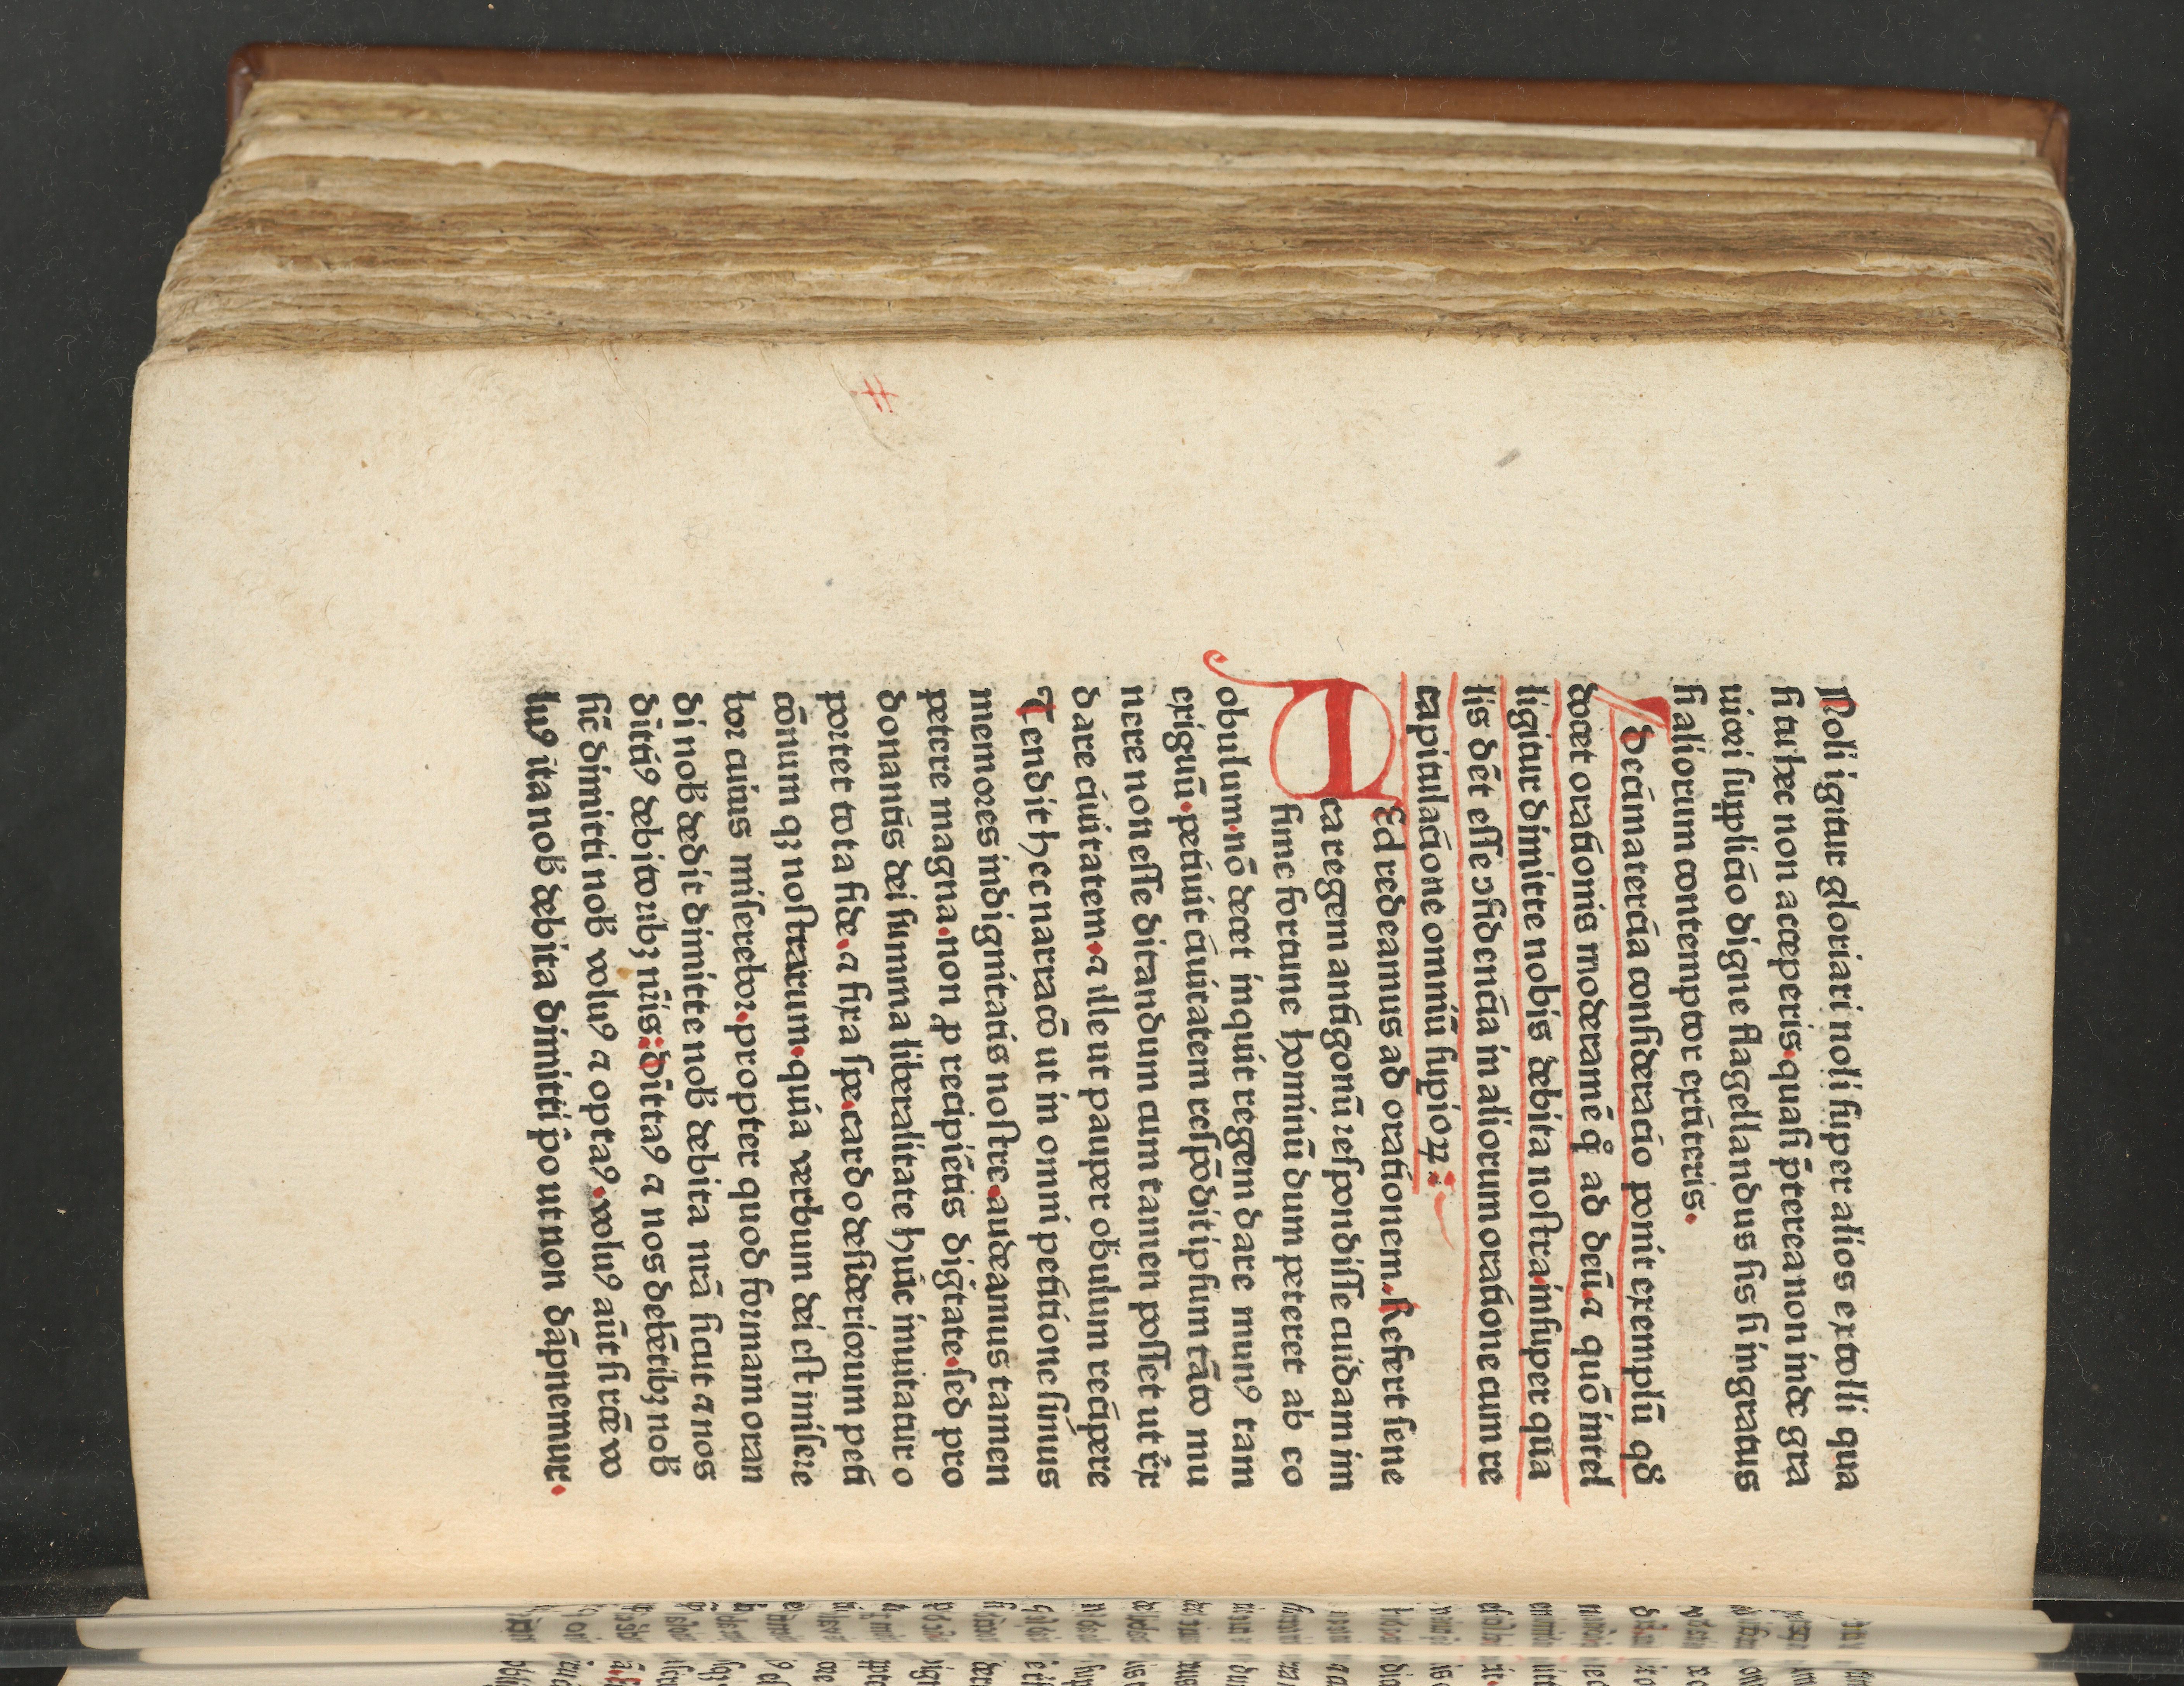 Noli igitur gloriari noli super alios extolli qua
si tu hec non acceperis. quasi p̄terea non inde gra
uiori supplicio digne flagellandus sis si ingratus
si aliorum contemptor extiteris.
Decimatercia consideracio ponit exemplū qđ
docet orationis moderamē q̊ ad deū. ⁊ quō intel
ligitur dimitte nobis debita nostra insuper qua
lis dēt esse ↄfidencia in aliorum oratione cum re
capitulacione omniū supioꝝ.:
Sed redeamus ad orationem. Refert sene
ca regem antigonū respondisse cuidam im
sime fortune hominū dum peteret ab eo
obulum. nō decet inquit regem dare munꝰ tam
exiguū. petiuit ciuitatem respōdit ipsum tāto mu
nere non esse ditandum cum tamen posset ut rex
dare ciuitatem. ⁊ ille ut pauper obulum recipere
Tendit hec narratō ut in omni petitione simus
memores indignitatis nostre. audeamus tamen
petere magna. non ꝓ recipiētis dignitate. sed pro
donantis dei summa liberalitate huic innitatur o
portet tota fide. ⁊ fixa spe. cardo desideriorum peti
cōnum qꝫ nostrarum. quia verbum dei est misere
bor cuius miserebor. propter quod formam oran
di nob̄ dedit dimitte nob̄ debita nrā sicut ⁊ nos
dimittimꝰ debitoribꝫ nr̄is: dimittimꝰ ⁊ nos debētibꝫ nob̄
sic̄ dimitti nob̄ volumꝰ ⁊ optamꝰ. volumꝰ aūt si recō vo
lumꝰ ita nob̄ debita dimitti p̄o ut non dāpnemur.